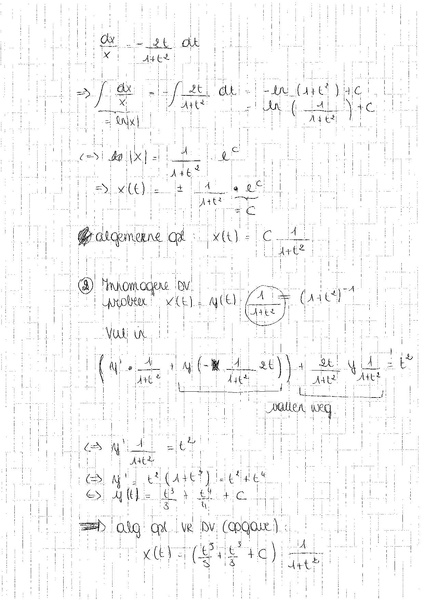 dx/x = - 2t/(1+t²) dt
=> ∫ dx/x = -∫ 2t/(1+t²) dt = -ln (1+t²) + C
= ln|x| = ln (1/(1+t²)) + C
<=> |x| = 1/(1+t²) e^C
=> x(t) = ± 1/(1+t²) • e^C
= C
algemene opl: x(t) = C 1/(1+t²)
② Inhomogene DV
probeer x(t) = y(t) 1/(1+t²) = (1+t²)⁻¹
Vul in
(y' • 1/(1+t²) + y (- 1/(1+t²) 2t)) + 2t/(1+t²) y 1/(1+t²) = t²
vallen weg
<=> y' 1/(1+t²) = t²
<=> y' = t² (1+t²) = t² + t⁴
<=> y(t) = t³/3 + t⁴/4 + C
=> alg opl vd DV (opgave):
x(t) = (t³/3 + t⁵/5 + C) 1/(1+t²)